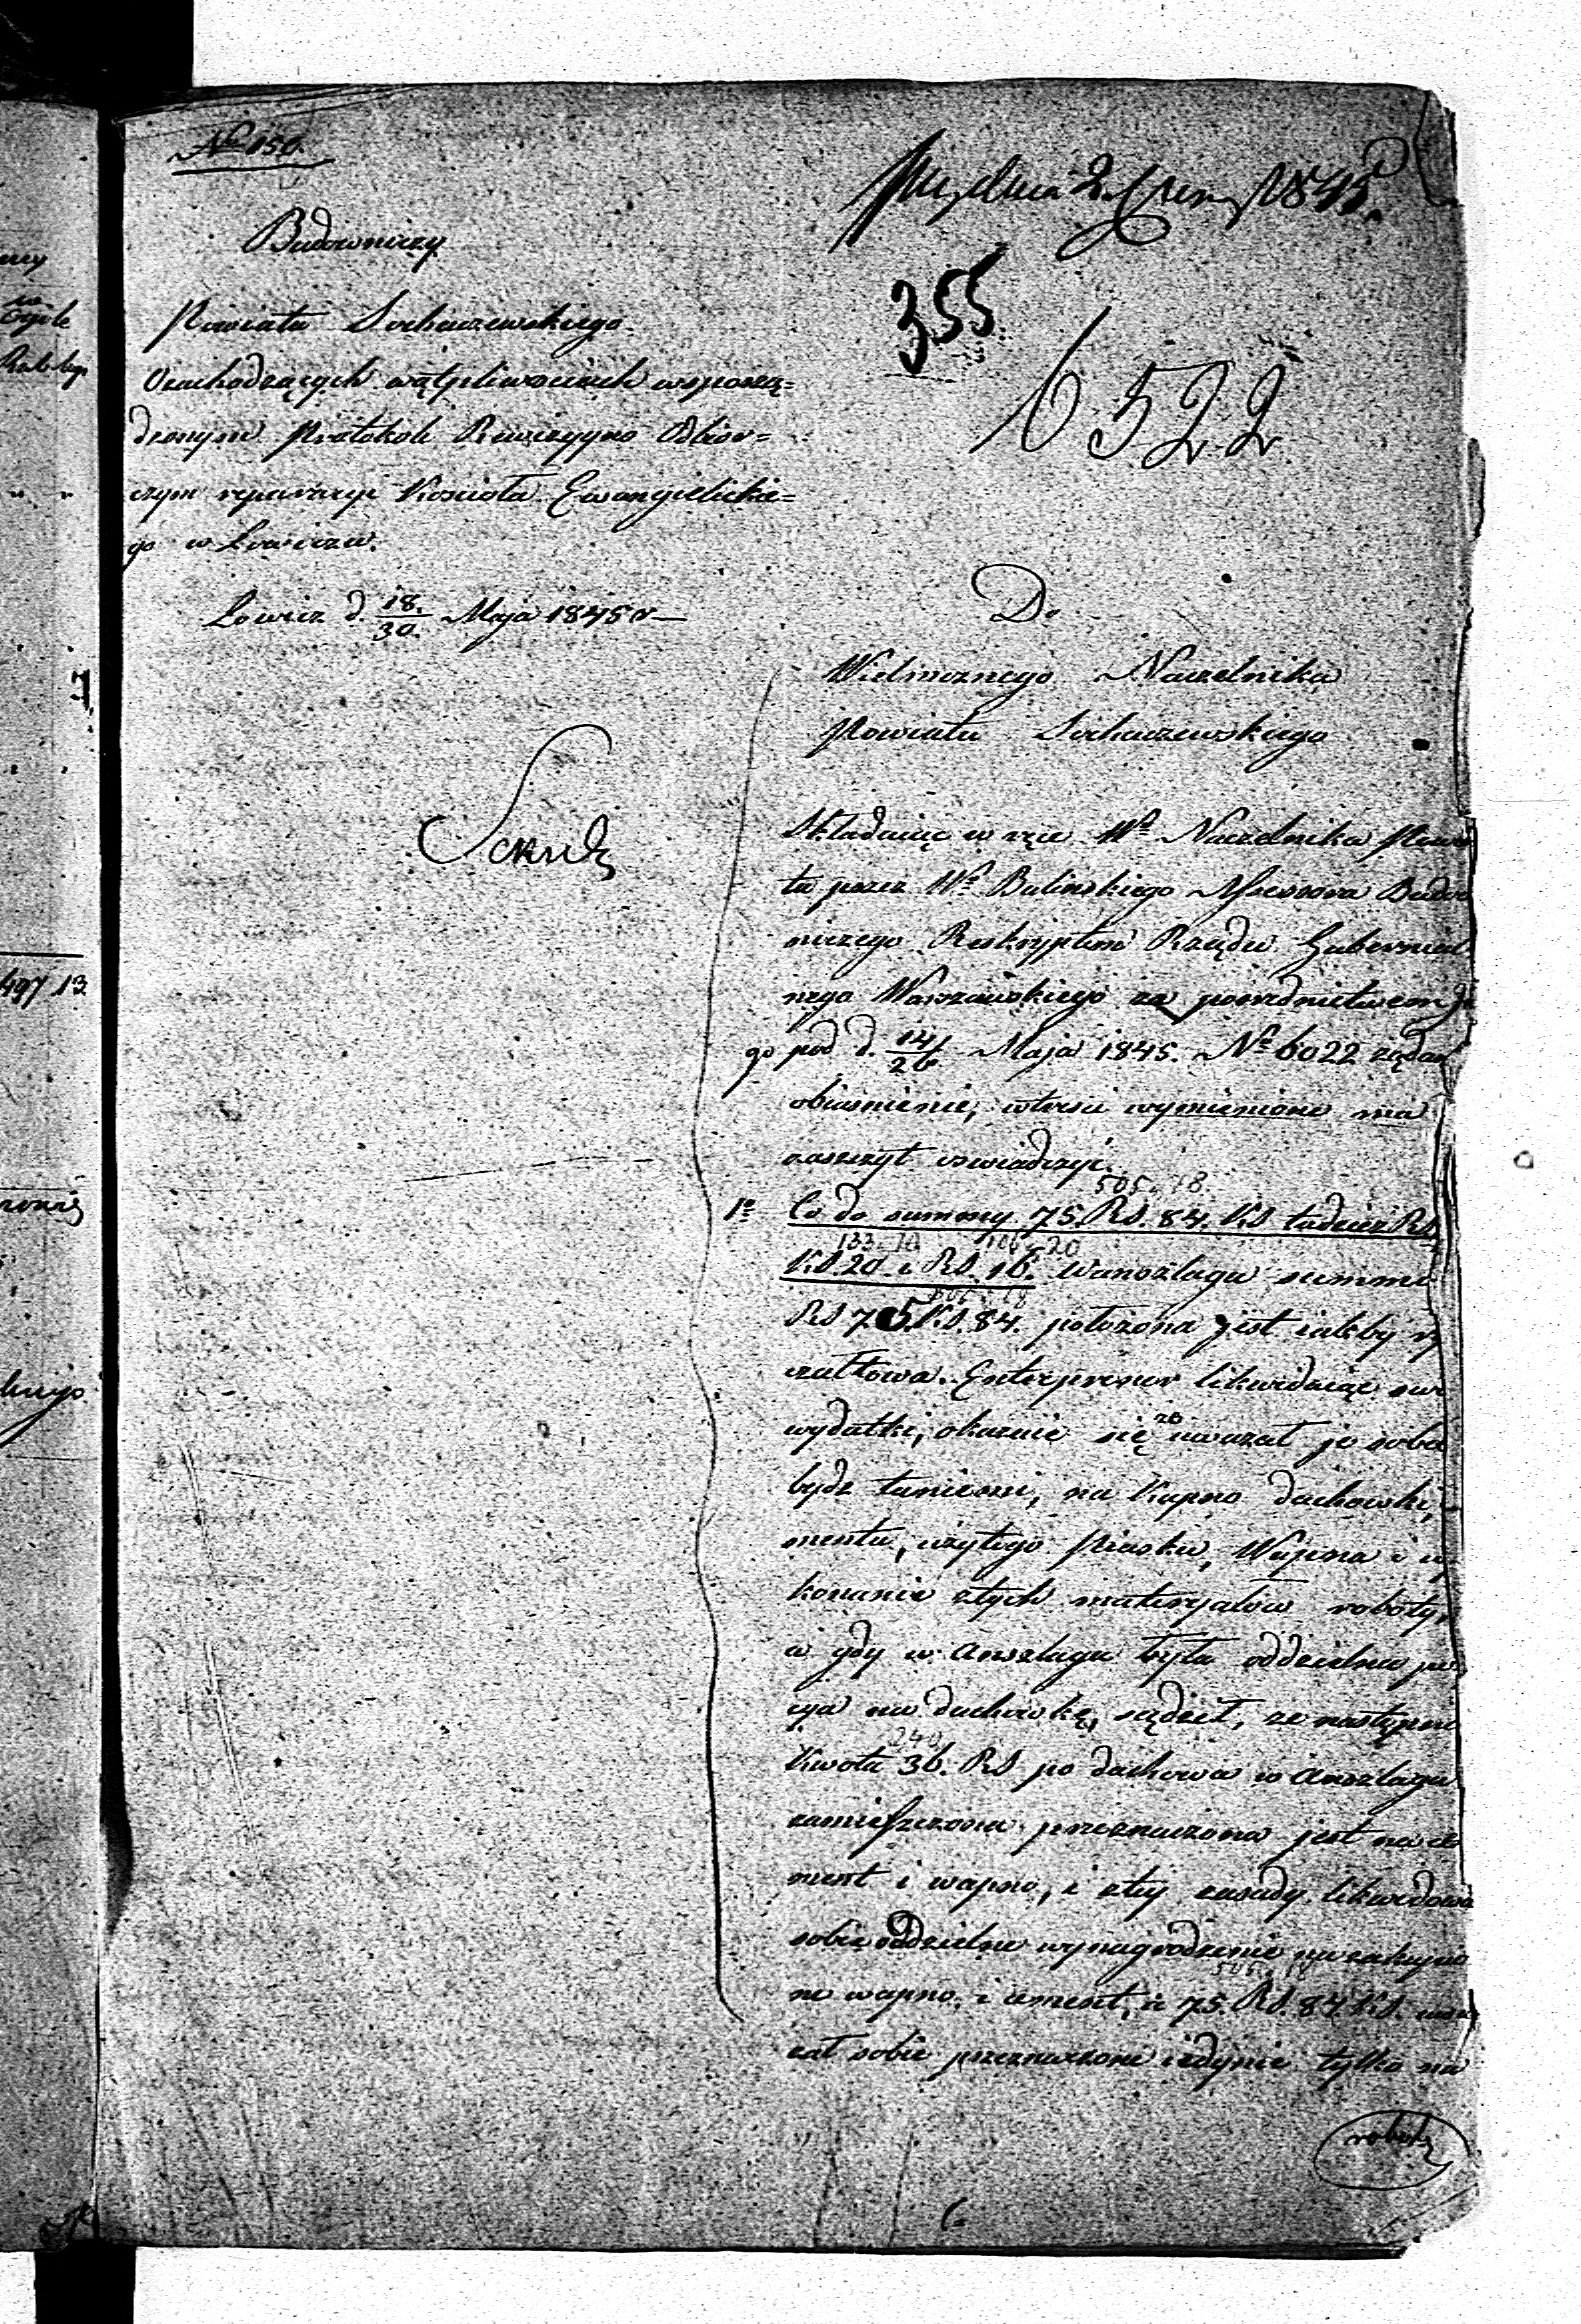 № 150.
Budowniczy
Powiatu Sochaczewskiego
O zachodzących wątpliwościach wsporzą=
dzonym Protokole Rewizyjno Odbior=
czym reparacyi Kościoła Ewangielickie=
go w Łowiczu.
Łowicz d. 18./30. Maja 1845 r
2 1845
355
6522
Do
Wielmożnego Naczelnika
Powiatu Sochaczewskiego
Składaiąc w ręce Wº Naczelnika Powia
tu przez Wº Bulinskiego Assessora Budow
niczego Reskryptem Rządu Gubernial
nego Warszawskiego za posrednictwem Je
go pod d. 14/26 Maja 1845. Nº 6022 żądan
obiasnienie, wtresci wymienione ma
zaszczyt oswiadczyć.
505 18.
1º Co do summy 75. RS. 84. KS tudzież RS
133 10 106 20
KS. 20. i RS. 16. wanszlagu summa
RS 75. KS. 84. położona jest iakby ry
czałtowa. Enterprener likwidując swe
wydatki, okazuie się że uważał je sobie
bydz na Kupno dachowki,
mentu, użytego Piasku, Wapna i wy
konanie ztych materyałów roboty,
a gdy w Anszlagu była oddzielna po
cya na dachówkę, sądził, ze następna
240
Kwota 36. RS po dachowce w Anszlagu
zamieszczona przeznaczona jest na ce
ment i wapno, i ztey zasady likwidował
sobie oddzielne wynagrodzenie na zakupio
ne wapno i cement, a 75. RS. 84 KS. uwa
żał sobie przeznaczone iedynie tylko na
robotę
497 13